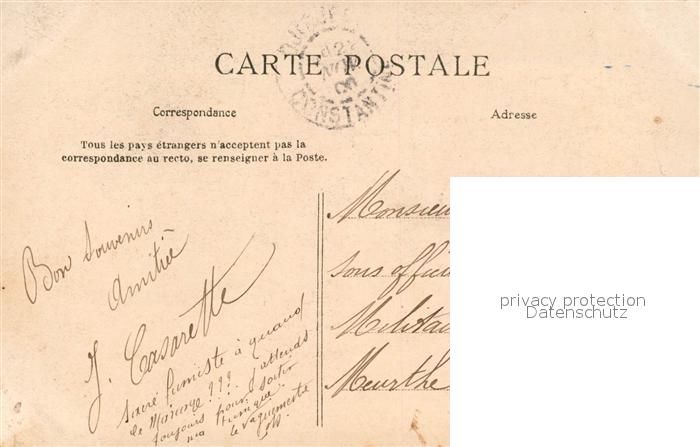 CARTE POSTALE
Correspondance
Adresse
Tous les pays étrangers n'acceptent pas la
correspondance au recto, se renseigner à la Poste.
NOV
06
CONSTANTINE
Bon Souvenirs
Amitié
J. Casarette
Sacré fumiste à quand
le Mariage ??? J'attends
toujours pour sortir
ma tunique.
le Vaguemestre
Monsieu
sous offici
Militai
Meurthe
privacy protection
Datenschutz